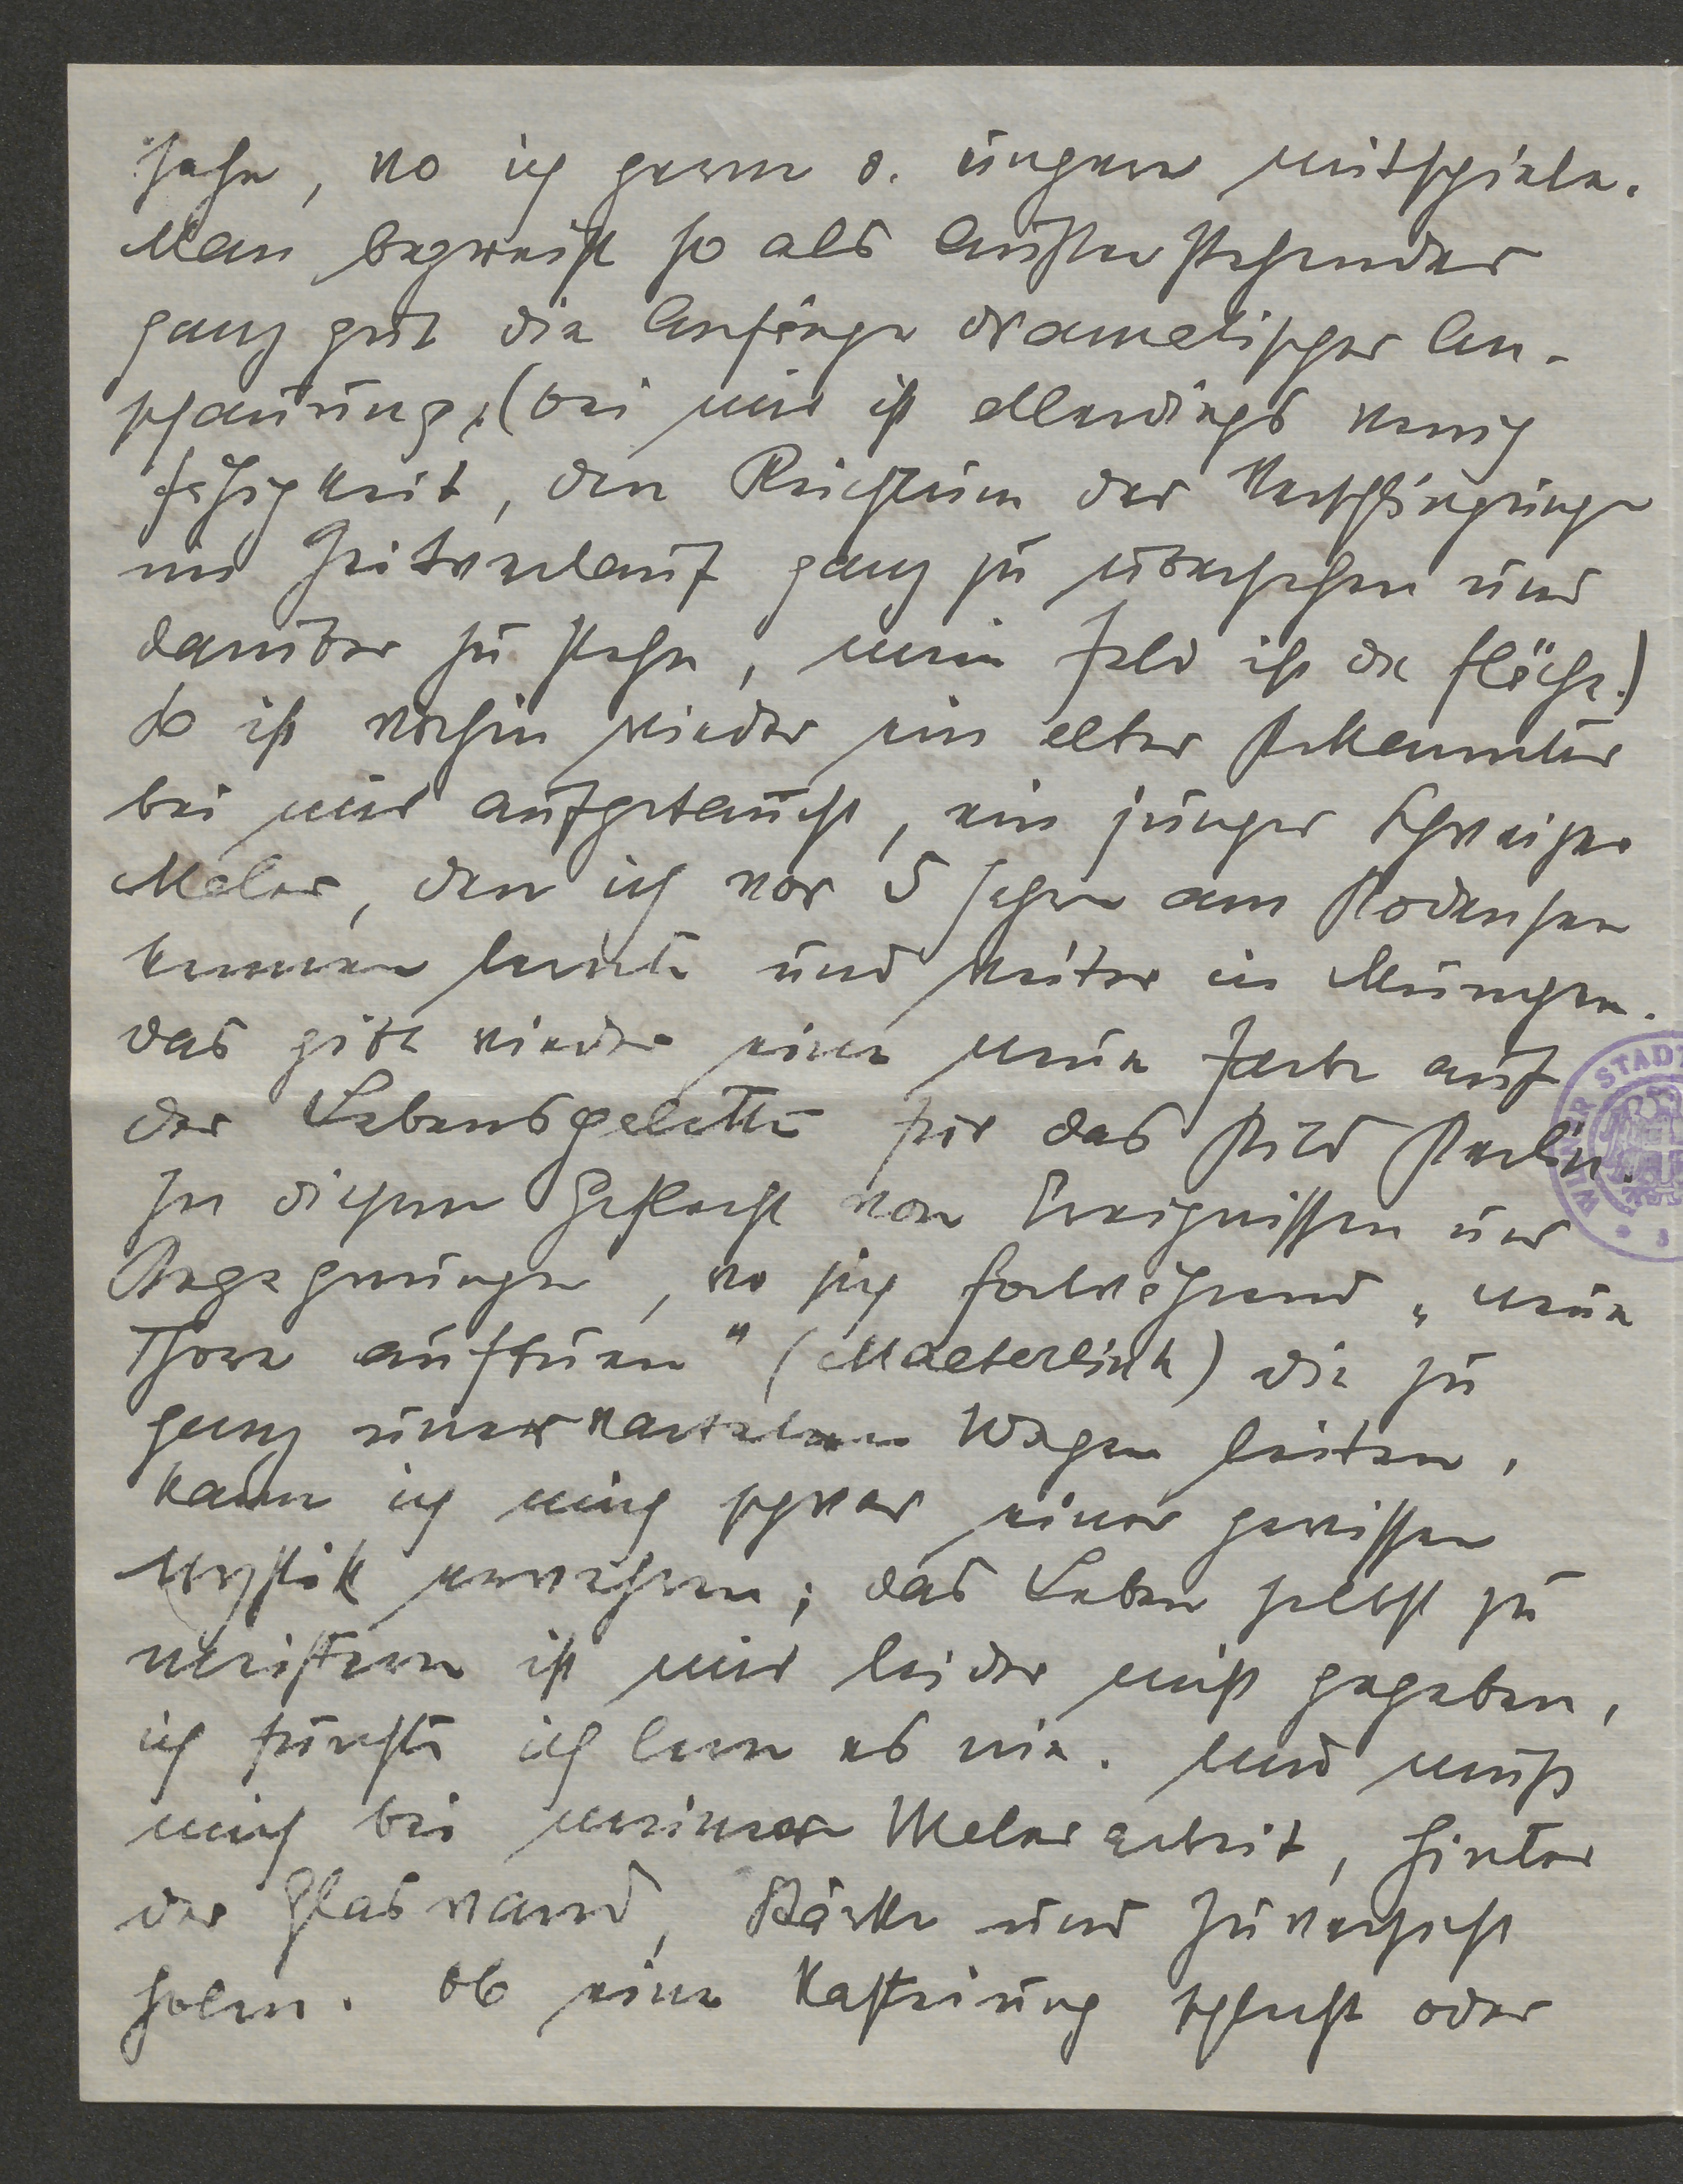 sehe, wo ich gern o. ungern mitspiele.
Man begreift so als Außenstehender
ganz gut die Anfänge dramatischer An-
schauung, (bei mir ist allerdings wenig
Fähigkeit, den Reichtum der Verschlingungen
im Zeitverlauf ganz zu übersehen und
darüber zu stehn, mein Feld ist die Fläche.)
So ist vorhin wieder ein alter Bekannter
bei mir aufgetaucht, ein junger Schweizer
Maler, den ich vor 5 Jahren am Bodensee
kennen lernte und weiter in München.
das gibt wieder eine neue Farbe auf
der Lebenspalette für das Bild Berlin.
In diesem Geflecht von Ereignissen und
Begegnungen, wo sich fortwährend „neue
Thore auftuen" (Maeterlink) die zu
ganz unerwarteten Wegen leiten,
kann ich mich schwer einer gewissen
Mystik erwehren; das Leben selbst zu
meistern ist mir leider nicht gegeben,
ich fürchte ich lern es nie. Und muß
mich bei meiner Malerarbeit, hinter
der Glaswand, Stärke und Zuversicht
holen. Ob eine Kasteiung schlecht oder
WIENER STADT